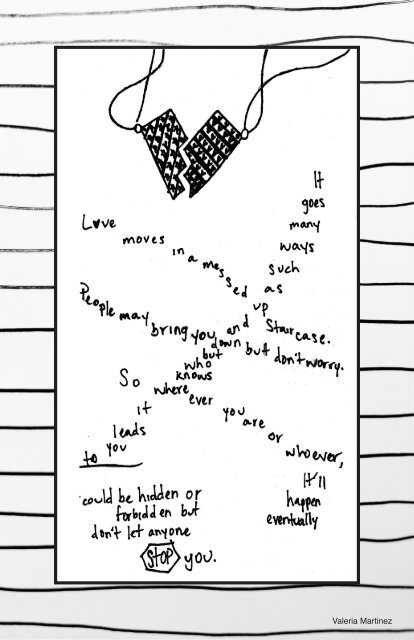 Love
moves
in a messed
up
Staircase.
It
goes
many
ways
such
as
up
and
down
but
who
knows
where
it
leads
to you
People may bring you down but don't worry.
So
where ever you are or whoever,
It'll
happen
eventually
could be hidden or
forbidden but
don't let anyone
STOP you.
Valeria Martinez